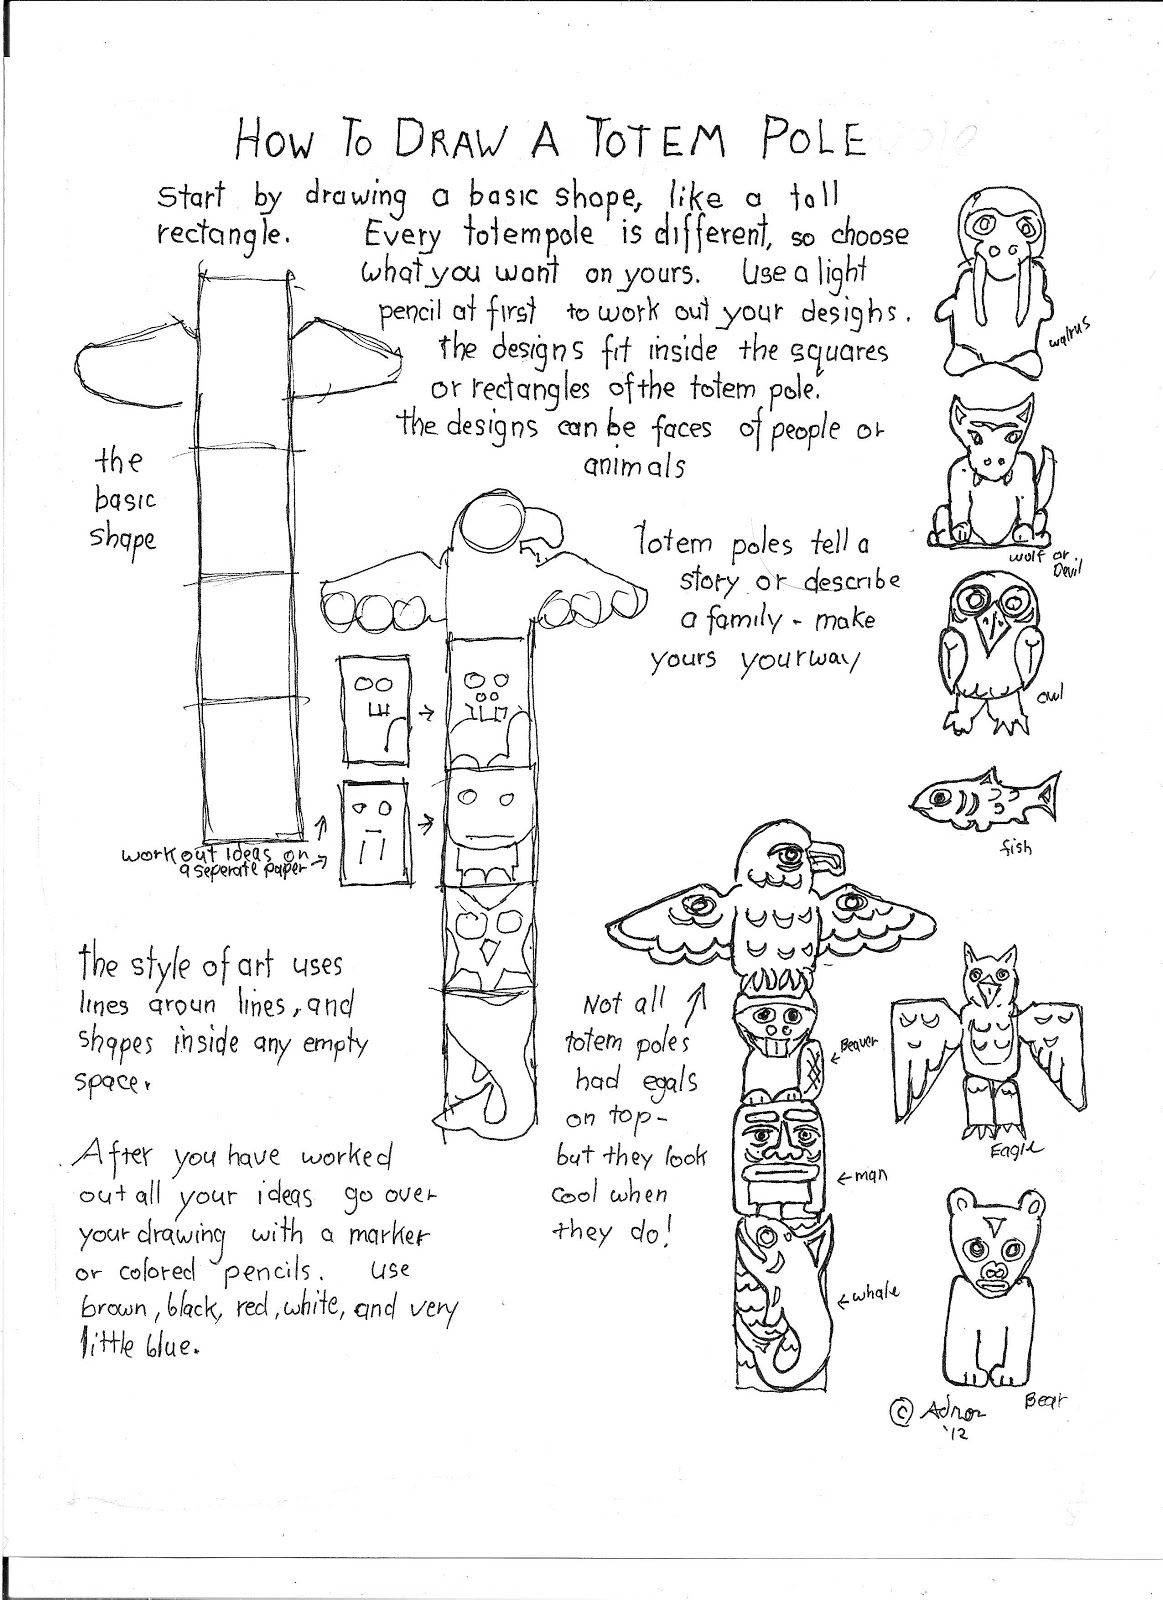 HOW TO DRAW A TOTEM POLE
Start by drawing a basic shape, like a tall
rectangle. Every totempole is different, so choose
what you want on yours. Use a light
pencil at first to work out your designs.
the designs fit inside the squares
or rectangles of the totem pole.
the designs can be faces of people or
animals
the
basic
shape
Totem poles tell a
story or describe
a family - make
yours your way
work out ideas on
a seperate paper
the style of art uses
lines aroun lines, and
shapes inside any empty
space.
After you have worked
out all your ideas go over
your drawing with a marker
or colored pencils. use
brown, black, red, white, and very
little blue.
Not all
totem poles
had egals
on top-
but they look
cool when
they do!
Beaver
man
whale
walrus
wolf or
Devil
owl
fish
Eagle
Bear
©
'12